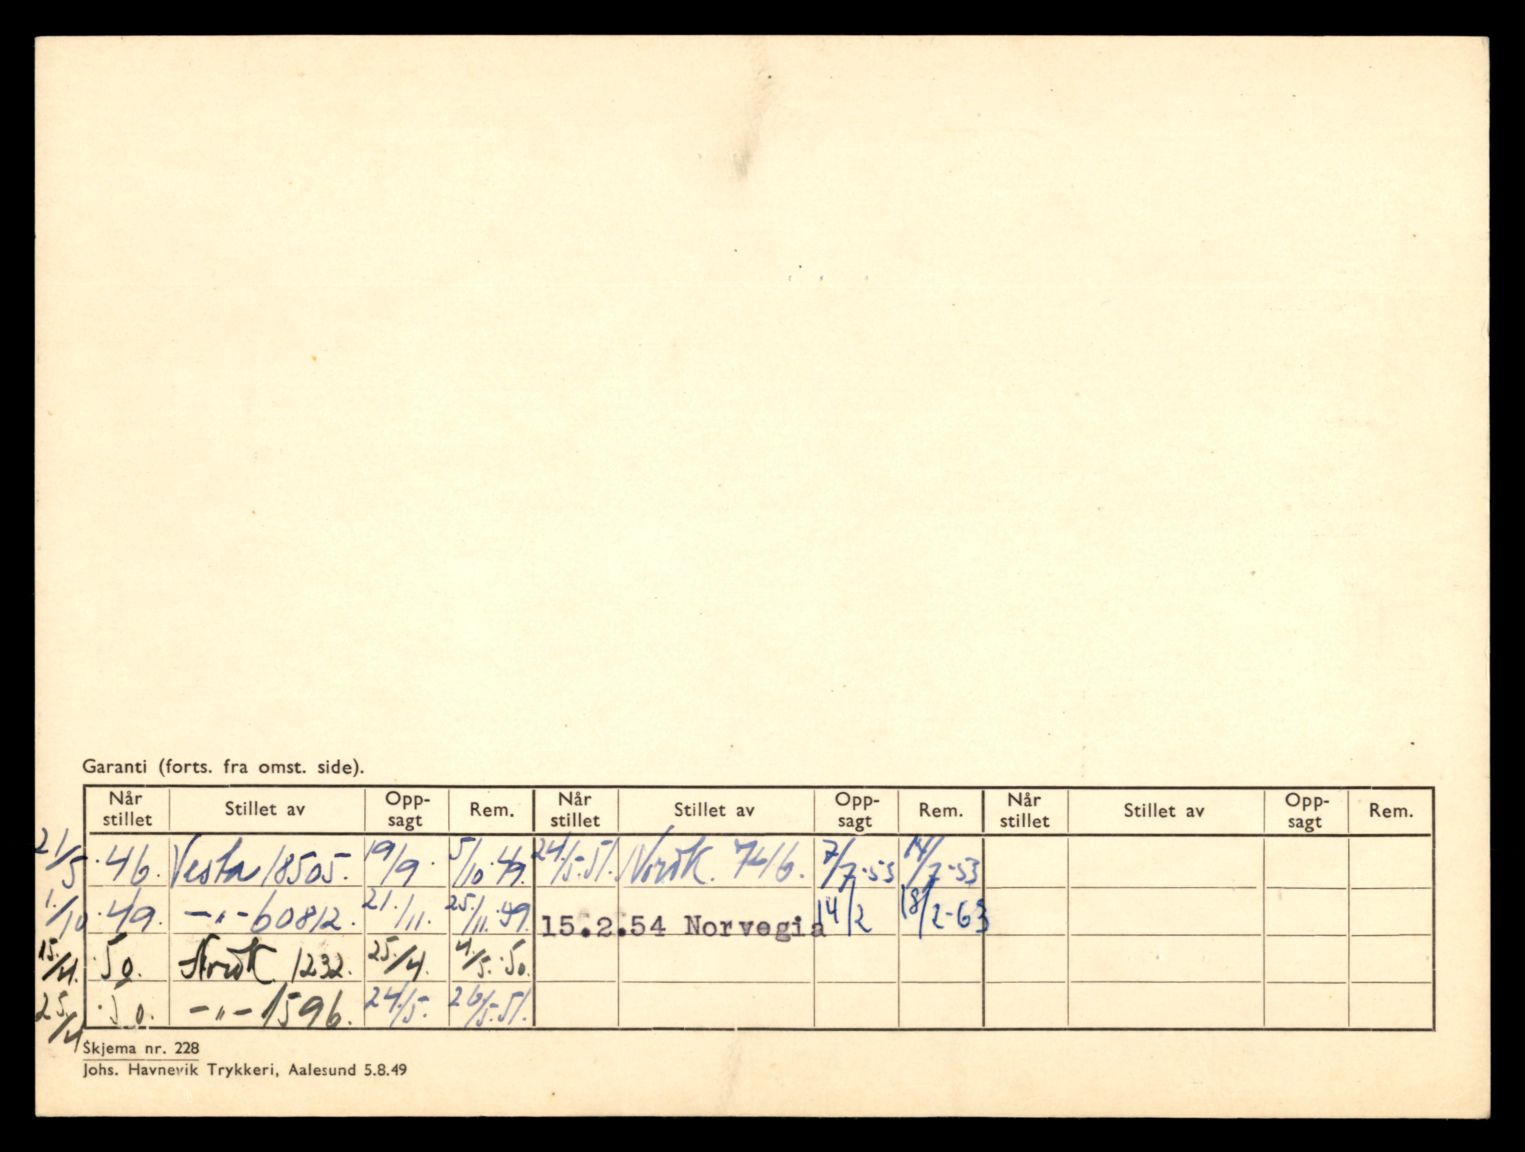 Garanti (forts. fra omst. side).
Når stillet Stillet av Opp-sagt Rem. Når stillet Stillet av Opp-sagt Rem. Når stillet Stillet av Opp-sagt Rem.
21/5 · 46. Vesta 18505. 19/9. 5/10.49. 24/5-51. Norsk. 7416. 7/7-53 14/7-53
1./10 · 49. -"- 60812. 21./11. 25./11.49. 15.2.54 Norvegia 14/2 18/2-63
15./4. · 50. 1232. 25./4. 4/5.50.
25./4 · 50. -"- 1596. 24./5. 26/5-51.
Skjema nr. 228
Johs. Havnevik Trykkeri, Aalesund 5.8.49